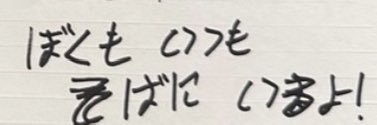 ぼくも いつも
そばに いるよ!